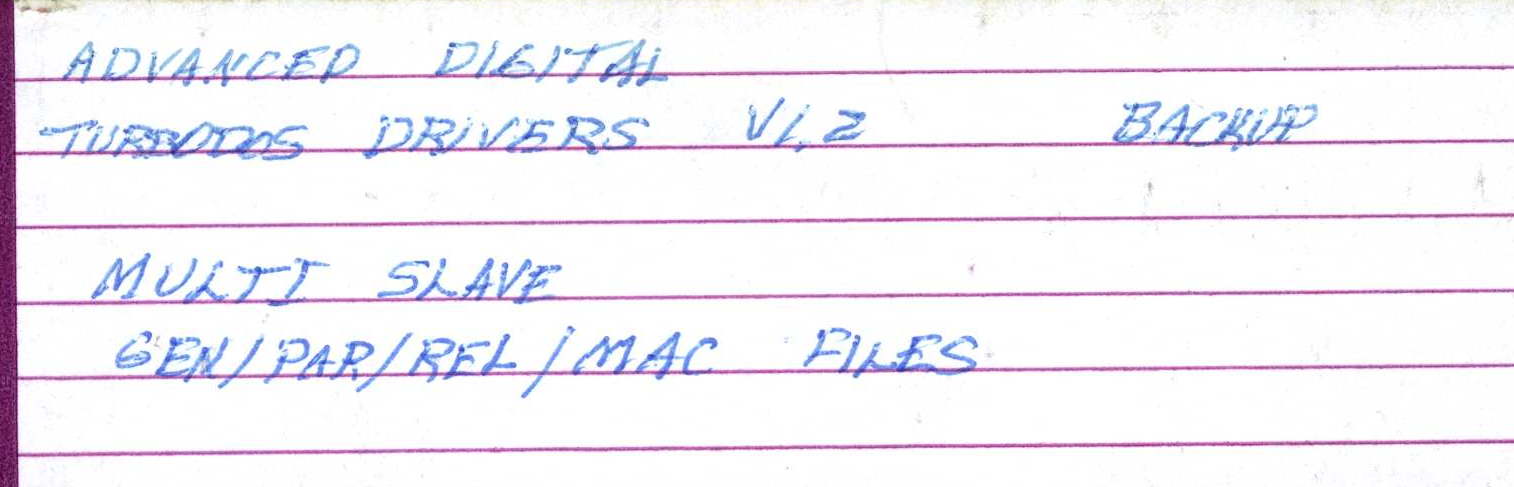 ADVANCED DIGITAL
TURBODOS DRIVERS V1.2 BACKUP
MULTI SLAVE
GEN/PAR/REL/MAC FILES